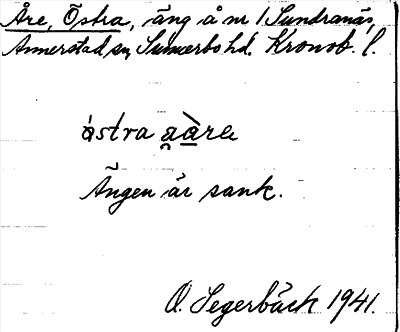 Åre, Östra, äng å nr 1 Sundranäs,
Annerstad sn, Sunnerbo hd. Kronob. l.
åstra a̯àre
Ängen är sank.
O. Segerbäck 1941.